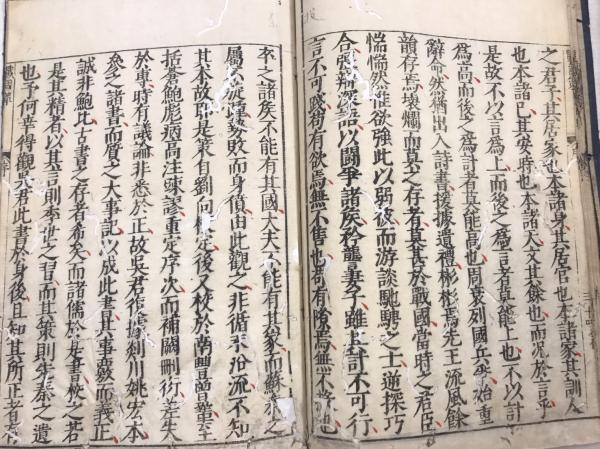 之君子其居家也本諸身其居官也本諸家其訓人
也本諸己其安時也本諸天文其餘也而況於言乎
是故不以言為上而後之為言者莫能上也不以計
為高而後之為計者莫能高也周衰列國兵爭始重
辭命然猶出入詩書援據遺禮彬彬焉先王流風餘
韻存焉壞爛而莫之存者莫甚於戰國當時之君臣
惴惴然惟欲強此以弱彼而游談馳騁之士逆探巧
合強辯深語以鬬爭諸侯矜豔妻子雖其計不可行
言不可踐苟有欲焉無不售也苟有隙焉無不投也
卒之諸侯不能有其國大夫不能有其家而蘇秦之
屬不旋踵勢敗而身僨由此觀之非循末沿流不知
其本故耶是策自劉向校定後又校於南豐曾鞏至
括蒼鮑彪病高注疎謬重定序次而補闕刪衍差失
於專時有議論非悉於正故吳君復據剡川姚宏本
參之諸書而質之大事記以成此書其事覈而義正
誠非鮑比古書之存者希矣而諸儒於是書校之若
是其精者以其言則季世之習而其策則先秦之遺
也予何幸得觀吳君此書於身後且知其所正者有